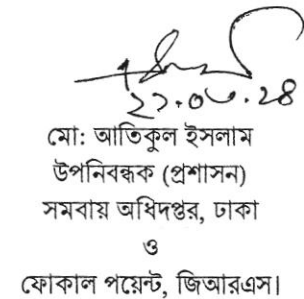 ২১.০৩.২৪
মো: আতিকুল ইসলাম
উপনিবন্ধক (প্রশাসন)
সমবায় অধিদপ্তর, ঢাকা
ও
ফোকাল পয়েন্ট, জিআরএস।